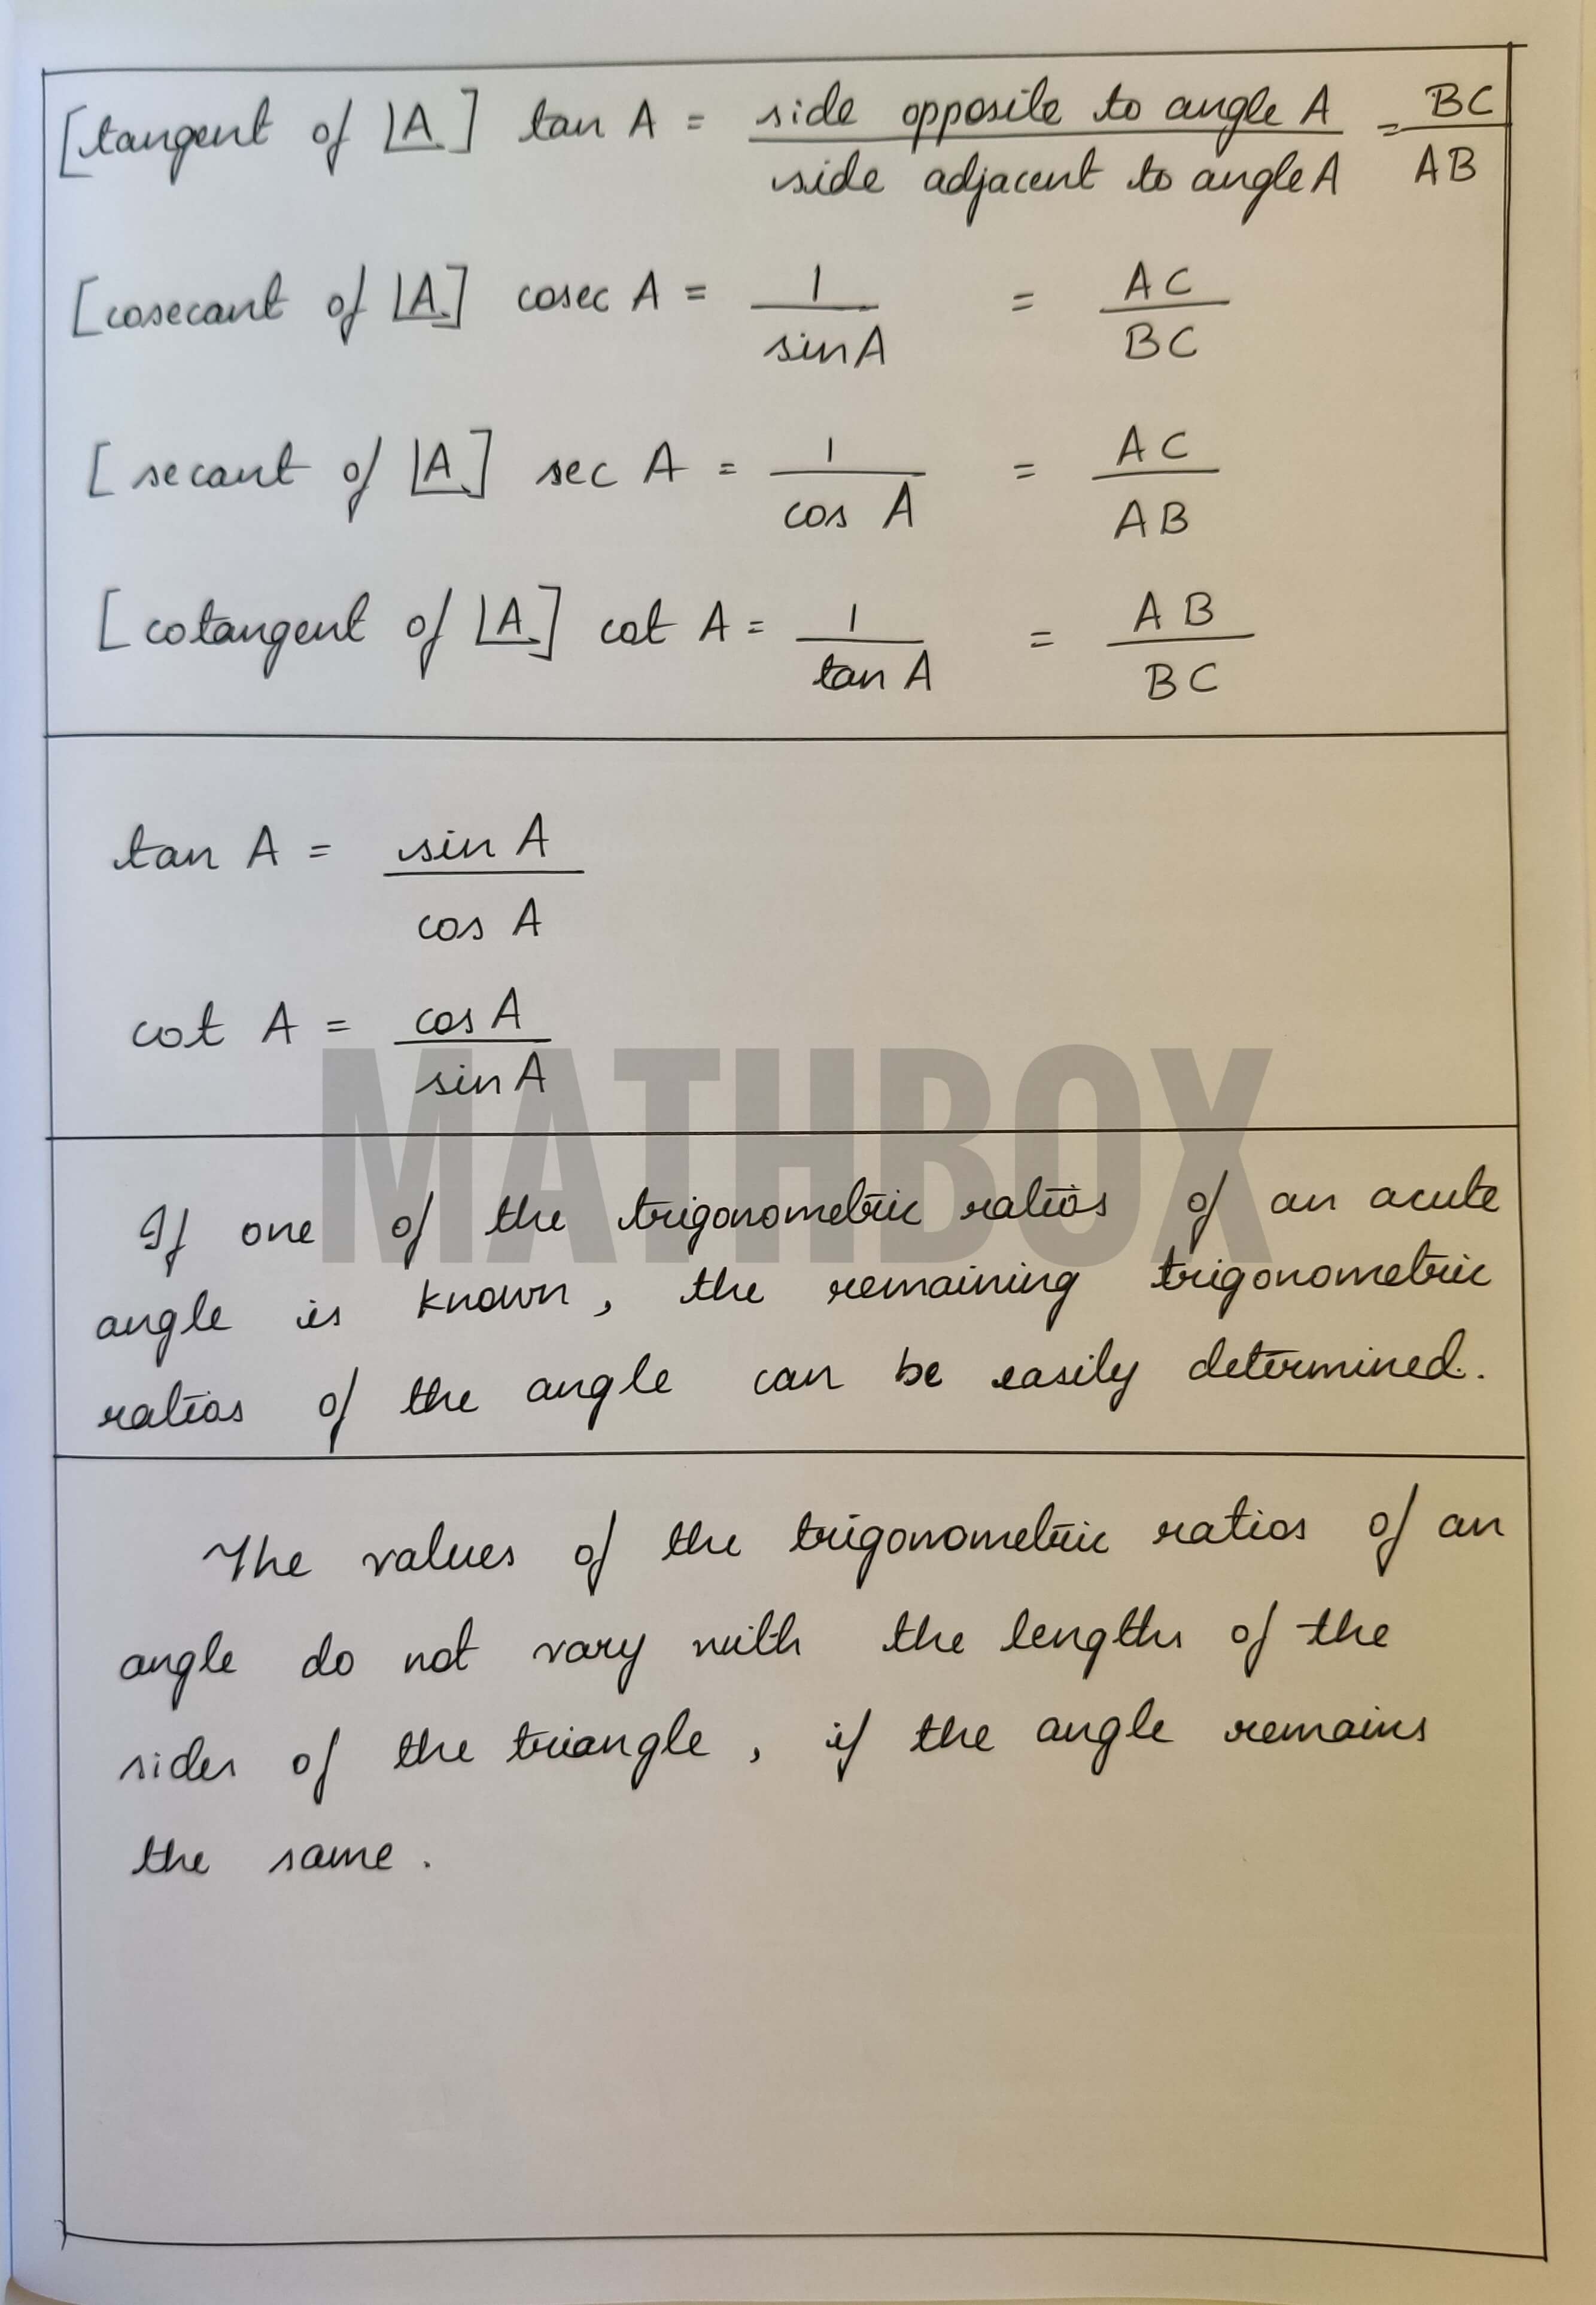 [tangent of ∠A] tan A = side opposite to angle A / side adjacent to angle A = BC / AB
[cosecant of ∠A] cosec A = 1 / sin A = AC / BC
[secant of ∠A] sec A = 1 / cos A = AC / AB
[cotangent of ∠A] cot A = 1 / tan A = AB / BC
tan A = sin A / cos A
cot A = cos A / sin A
MATHBOX
If one of the trigonometric ratios of an acute
angle is known, the remaining trigonometric
ratios of the angle can be easily determined.
The values of the trigonometric ratios of an
angle do not vary with the lengths of the
sides of the triangle, if the angle remains
the same.